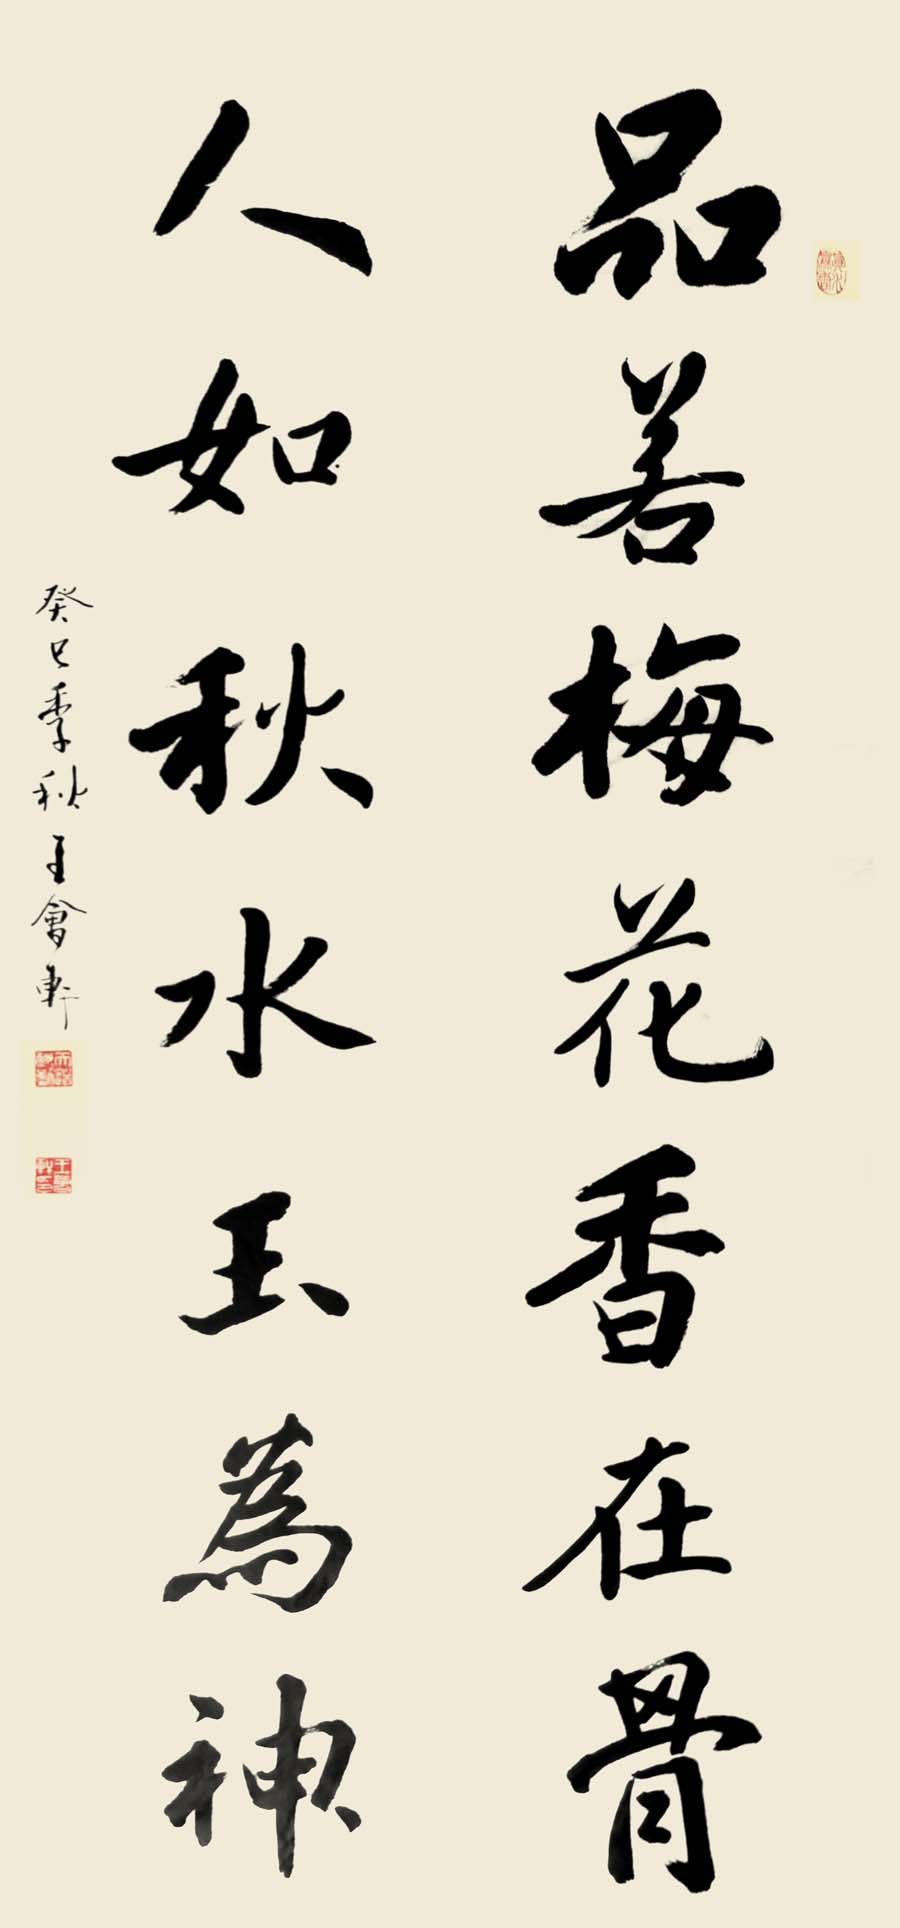 品若梅花香在骨
人如秋水玉為神
癸巳季秋王會軒